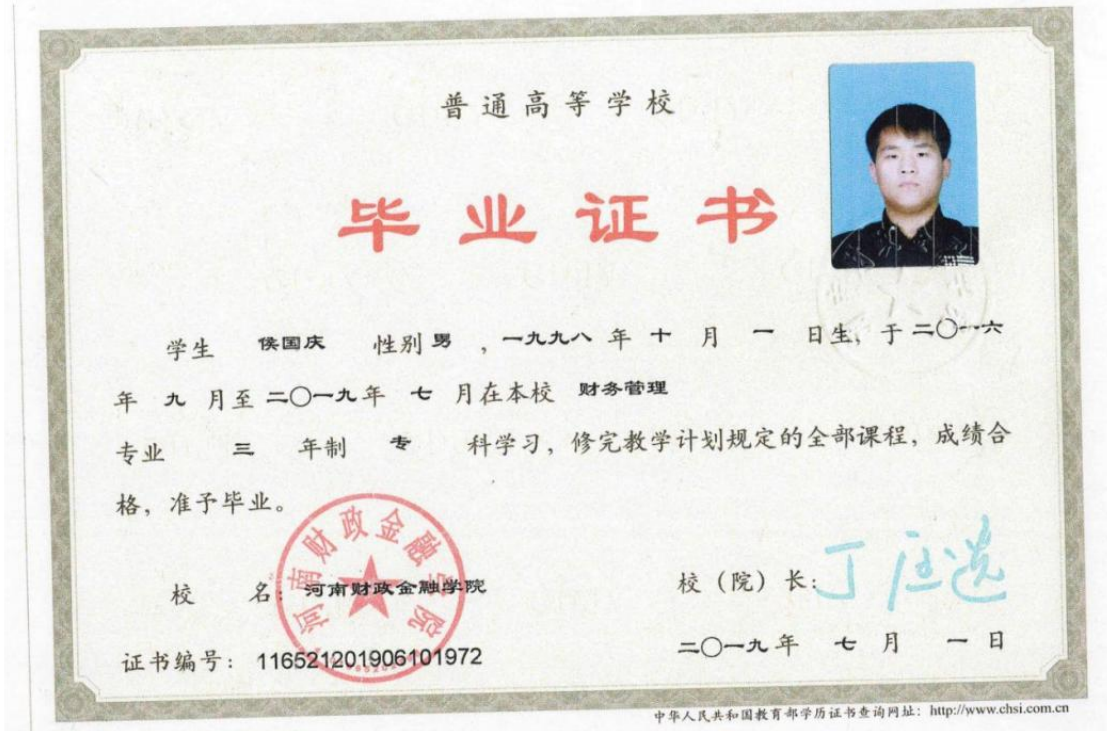 普通高等学校
毕业证书
学生 侯国庆 性别 男 ，一九九八 年 十 月 一 日生，于 二〇一六
年 九 月至 二〇一九 年 七 月在本校 财务管理
专业 三 年制 专 科学习，修完教学计划规定的全部课程，成绩合
格，准予毕业。
河南财政金融学院
校 名：河南财政金融学院
校（院）长：
证书编号：116521201906101972
二〇一九 年 七 月 一 日
中华人民共和国教育部学历证书查询网址：http://www.chsi.com.cn